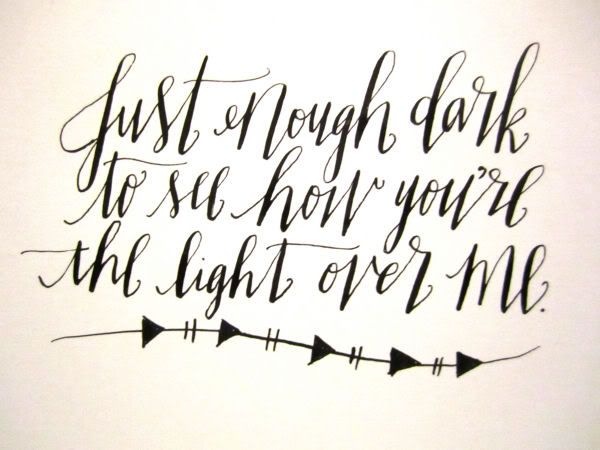 Just enough dark
to see how you're
the light over me.